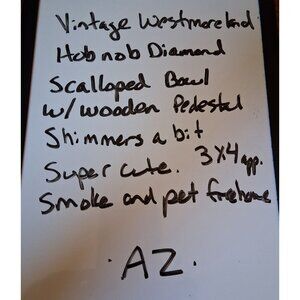 Vintage Westmoreland
Hobnob Diamond
Scalloped Bowl
w/ wooden Pedestal
Shimmers a bit
Super cute. 3X4 app.
Smoke and pet free home
. AZ .